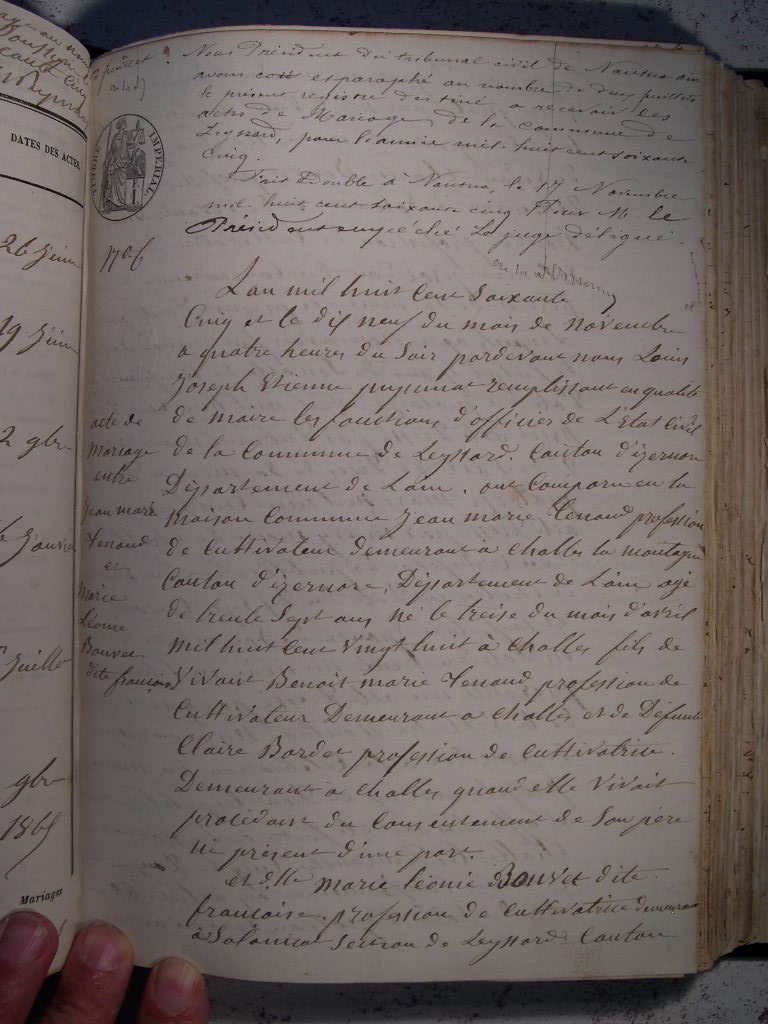 DATES DES ACTES
26 Juin
19 Juin
2 gbre
Juillet
gbre
1865
Mariages
TIMBRE IMPERIAL
Nous Président du tribunal civil de Nantua
avons coté et paraphé au nombre de deux feuillets
le présent registre destiné a recevoir les
actes de Mariage de la commune de
Leyssard, pour l'année mil huit cent soixante
cinq.
Fait Double à Nantua, le 17 Novembre
mil huit cent soixante cinq Pour M. le
Président empêché Le juge délégué.
L'an mil huit Cent Soixante
Cinq et le dix neuf du mois de Novembre
a quatre heures du Soir pardevant nous Louis
Joseph Etienne remplissant en qualité
de maire les fonctions d'officier de L'Etat Civil
de la Commune de Leyssard. Canton d'izernore
Département de L'ain. ont Comparu en la
maison Commune Jean marie Tenand profession
de Cultivateur demeurant a Challes la montagne
Canton d'izernore, Département de L'ain agé
de trente Sept ans né le treise du mois d'avril
mil huit Cent vingt huit à Challes fils de
Vivant Benoit marie Tenand profession de
Cultivateur Demeurant a Challes et de Défunte
Claire Bordet profession de Cultivatrice.
Demeurant a Challes quand elle Vivait
procédant du Consentement de Son père
ici présent d'une part.
et dlle marie léonie Bouvet dite
francoise. profession de Cultivatrice demeurant
à Solomiat Section de Leyssard Canton
acte de
Mariage
entre
Jean marie
Tenand
et
Marie
Léonie
Bouvet
dite françoise